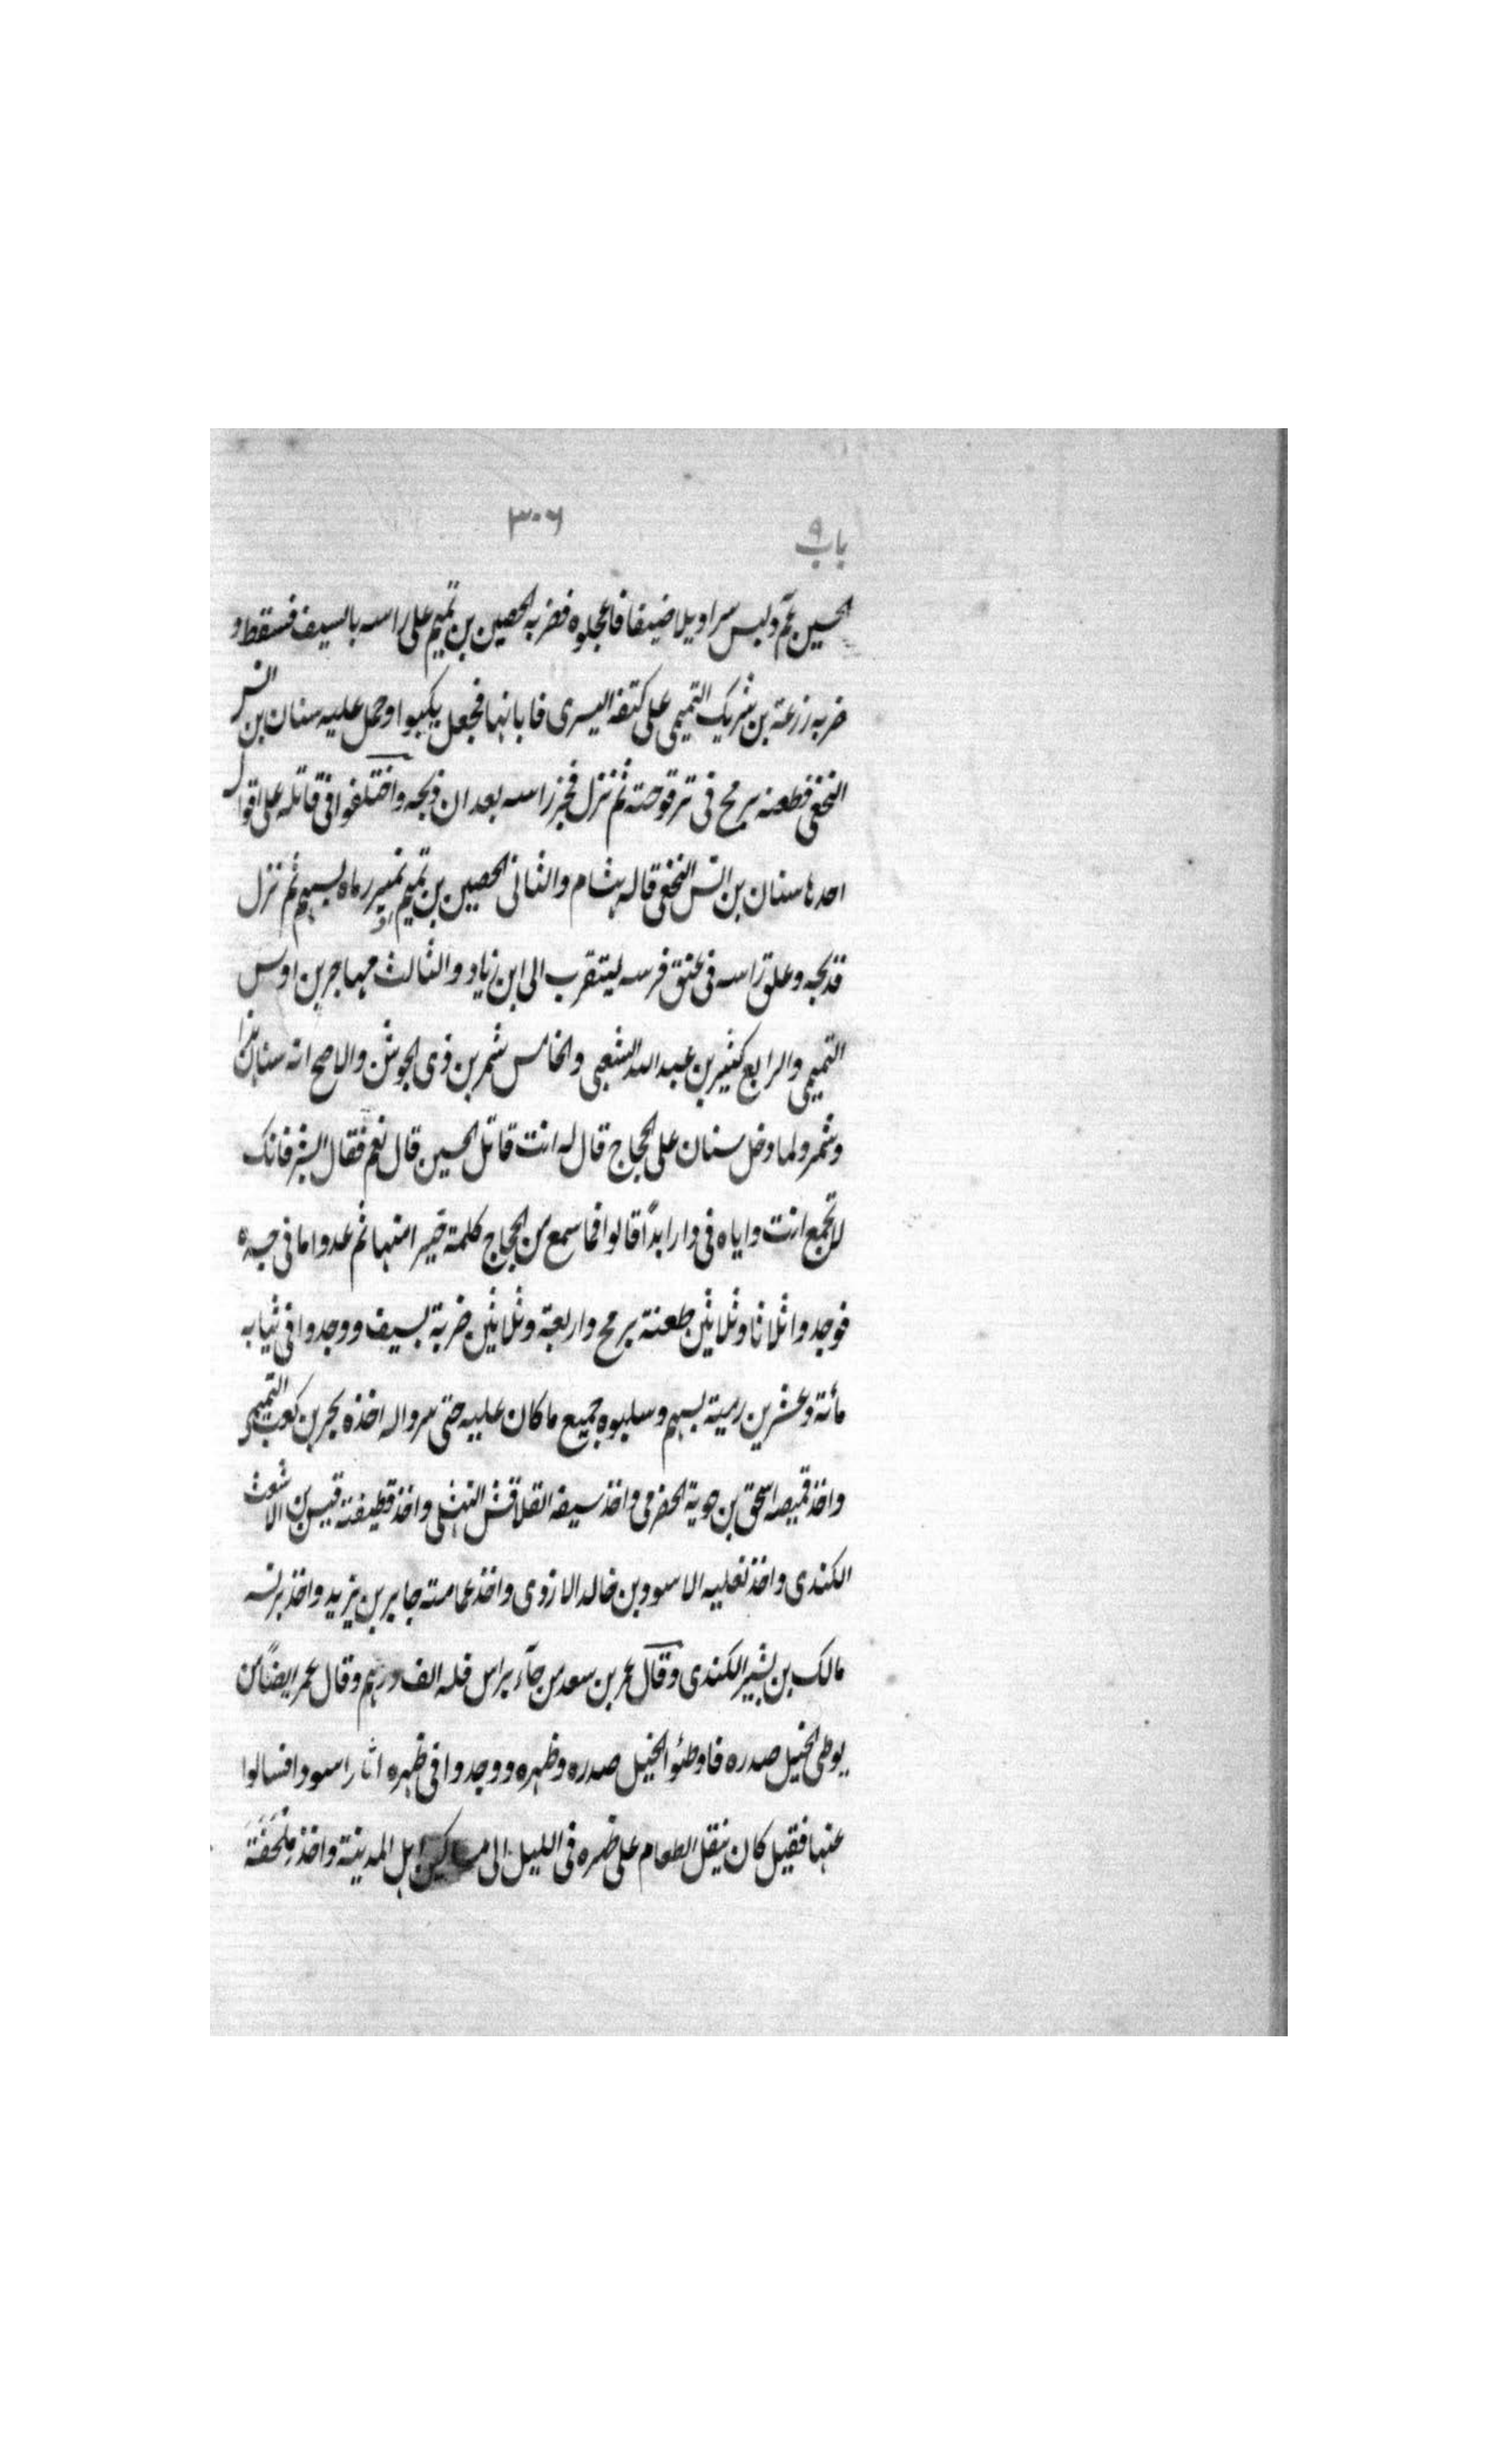 ٣٠٦
باب ٩
الحسين عم ولبس سراويلا ضيقا فاعجلوه فضربه الحصين بن تميم على راسه بالسيف فسقط و
ضربه زرعة بن شريك التميمى على كتفه اليسرى فابانها فجعل يكبوا وحمل عليه سنان بن انس
النخعى فطعنه برمح فى ترقوته ثم نزل فجز راسه بعد ان ذبحه واختلفوا فى قاتله على اقوال
احدها سنان بن انس النخعى قاله هشام والثانى الحصين بن تميم نمير رماه بسهم ثم نزل
فذبحه وعلق راسه فى عنق فرسه ليتقرب الى ابن زياد والثالث مهاجر بن اوس
التميمى والرابع كثير بن عبد الله الشعبى والخامس شمر بن ذى الجوشن والاصح انه سنان هذا
وشمر ولما دخل سنان على الحجاج قال له انت قاتل الحسين قال نعم فقال ابشر فانك
لا تجمع انت واياه فى دار ابداً قالوا فما سمع من الحجاج كلمة خير منها ثم عدوا ما فى جسده
فوجدوا ثلاثا وثلاثين طعنة برمح واربعة وثلاثين ضربة بسيف ووجدوا فى ثيابه
مائة وعشرين رمية بسهم وسلبوه جميع ما كان عليه حتى سرواله اخذه بحر بن كعب التميمى
واخذ قميصه اسحق بن حوية الحضرمى واخذ سيفه القلافش النهشلى واخذ قطيفته قيس بن الاشعث
الكندى واخذ نعليه الاسود بن خالد الازدى واخذ عمامته جابر بن يزيد واخذ برنسه
مالك بن بشير الكندى وقال عمر بن سعد من جآء براس فله الف درهم وقال عمر ايضاً من
يوطى الخيل صدره فاوطئوا الخيل صدره وظهره ووجدوا فى ظهره اثارا سودا فسالوا
عنها فقيل كان ينقل الطعام على ظهره فى الليل الى مساكين اهل المدينة واخذ ملحفة